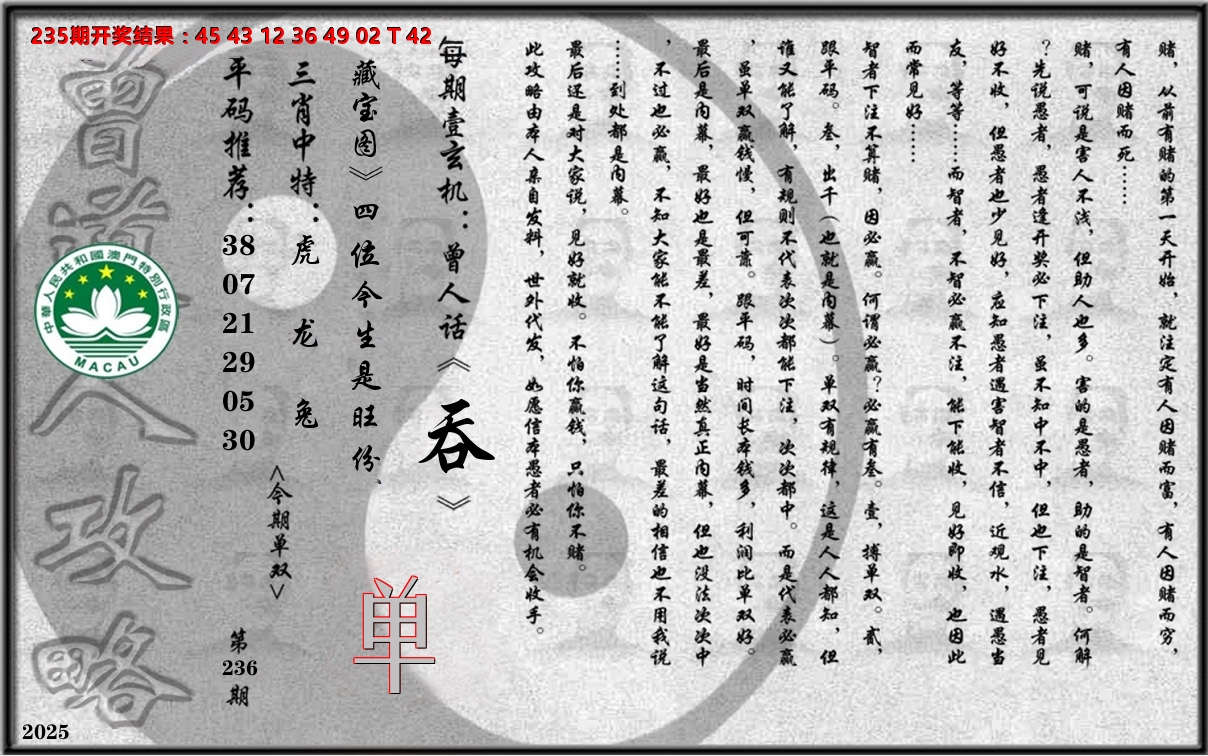 235期开奖结果：45 43 12 36 49 02 T 42
赌，从前有赌的第一天开始，就注定有人因赌而富，有人因赌而穷，
有人因赌而死……
赌，可说是害人不浅，但助人也多。害的是愚者，助的是智者。何解
？先说愚者，愚者逢开奖必下注，虽不知中不中，但也下注，愚者见
好不收，但愚者也少见好，应知愚者遇害智者不信，近观水，遇愚当
友，等等……而智者，不智必赢不注，能下能收，见好即收，也因此
而常见好……
智者下注不算赌，因必赢。何谓必赢？必赢有叁。壹，搏单双。贰，
跟平码。叁，出千（也就是内幕）。单双有规律，这是人人都知，但
谁又能了解，有规则不代表次次都能下注，次次都中。而是代表必赢
，虽单双赢钱慢，但可靠。跟平码，时间长本钱多，利润比单双好。
最后是内幕，最好也是最差，最好是当然真正内幕，但也没法次次中
，不过也必赢，不知大家能不能了解这句话，最差的相信也不用我说
……到处都是内幕。
最后还是对大家说，见好就收。不怕你赢钱，只怕你不赌。
此攻略由本人亲自发料，世外代发，如愿信本愚者必有机会收手。
每期壹玄机：曾人话《吞》
藏宝图》四位今生是旺份、
三肖中特：虎 龙 兔
<今期单双>
单
平码推荐：38 07 21 29 05 30
第236期
曾道人攻略
中華人民共和國澳門特別行政區
MACAU
2025